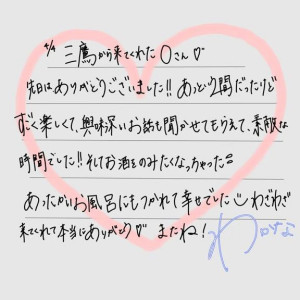 4/9 三鷹から来てくれた Oさん♡
先日はありがとうございました!! あっとゆう間だったけど
すごく楽しくて、興味深いお話も聞かせてもらえて、素敵な
時間でした!! そしてお酒をのみたくなっちゃった
あったかいお風呂にもつかれて幸せでした わざわざ
来てくれて本当にありがとう♡ またね!